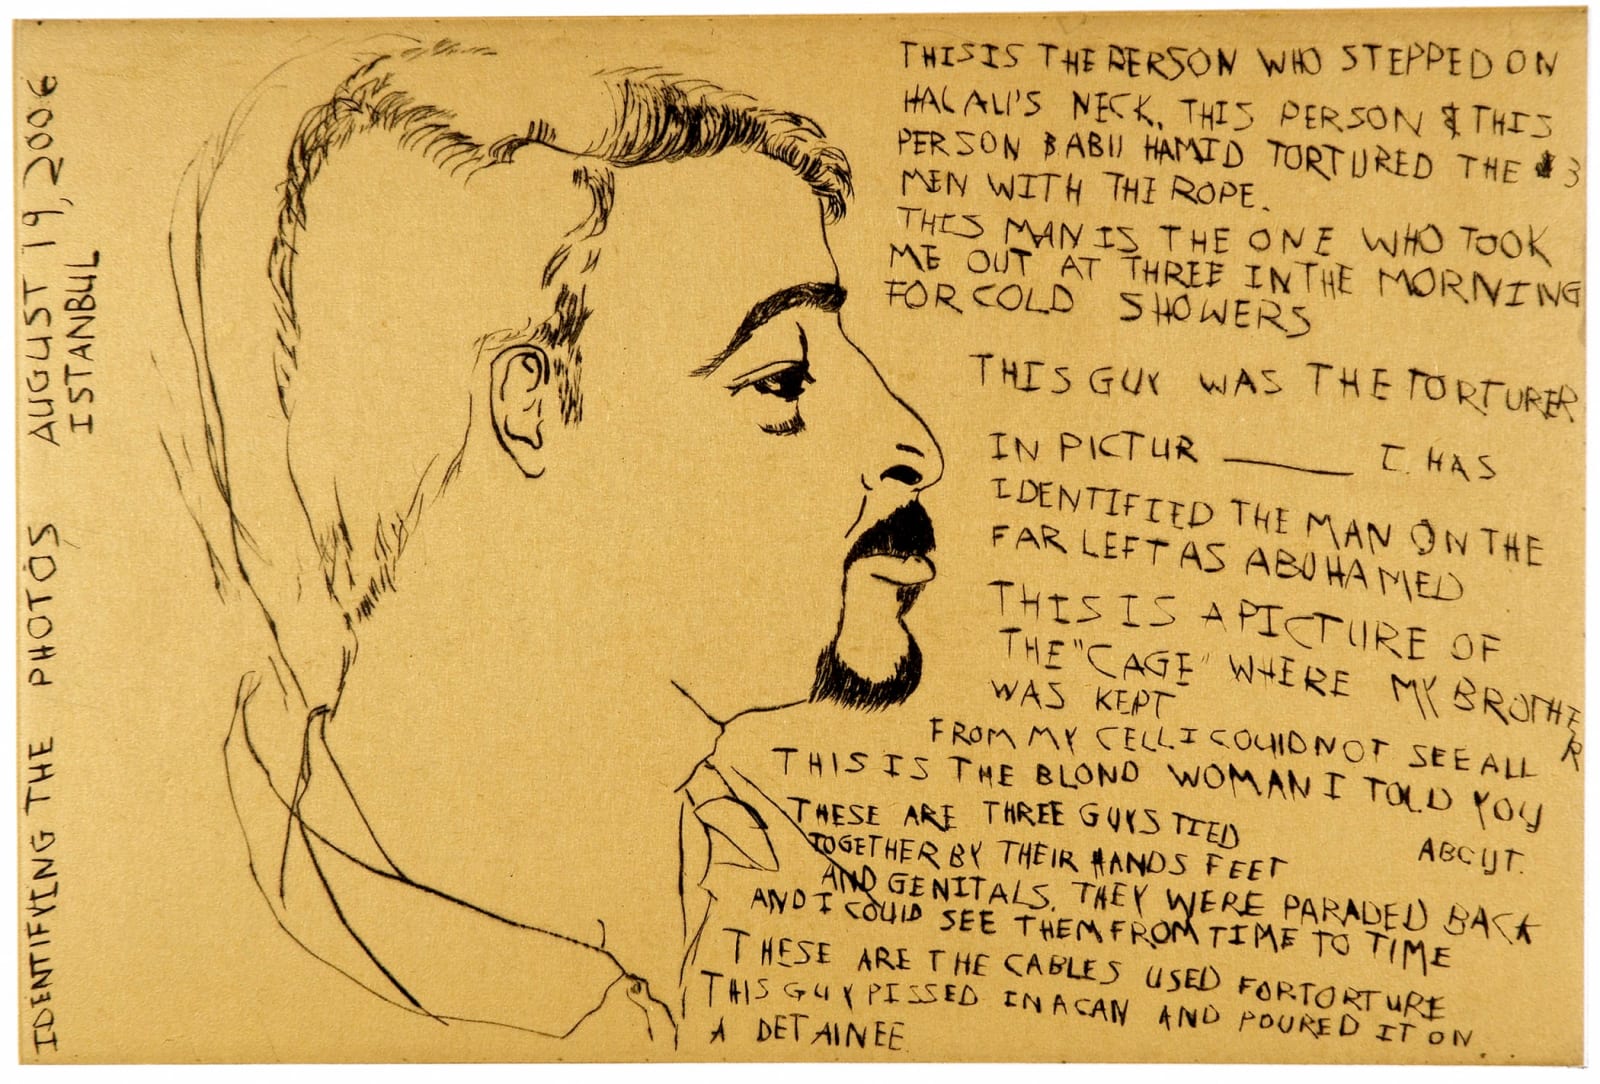 IDENTIFYING THE PHOTOS AUGUST 19, 2006
ISTANBUL
THIS IS THE PERSON WHO STEPPED ON
HAL ALI'S NECK. THIS PERSON & THIS
PERSON BABU HAMID TORTURED THE 3
MEN WITH THE ROPE.
THIS MAN IS THE ONE WHO TOOK
ME OUT AT THREE IN THE MORNING
FOR COLD SHOWERS
THIS GUY WAS THE TORTURER
IN PICTUR ______ I. HAS
IDENTIFIED THE MAN ON THE
FAR LEFT AS ABU HAMED
THIS IS A PICTURE OF
THE "CAGE" WHERE MY BROTHER
WAS KEPT
FROM MY CELL I COULD NOT SEE ALL
THIS IS THE BLOND WOMAN I TOLD YOU
ABOUT.
THESE ARE THREE GUYS TIED
TOGETHER BY THEIR HANDS FEET
AND GENITALS. THEY WERE PARADED BACK
AND I COULD SEE THEM FROM TIME TO TIME
THESE ARE THE CABLES USED FOR TORTURE
THIS GUY PISSED IN A CAN AND POURED IT ON
A DETAINEE